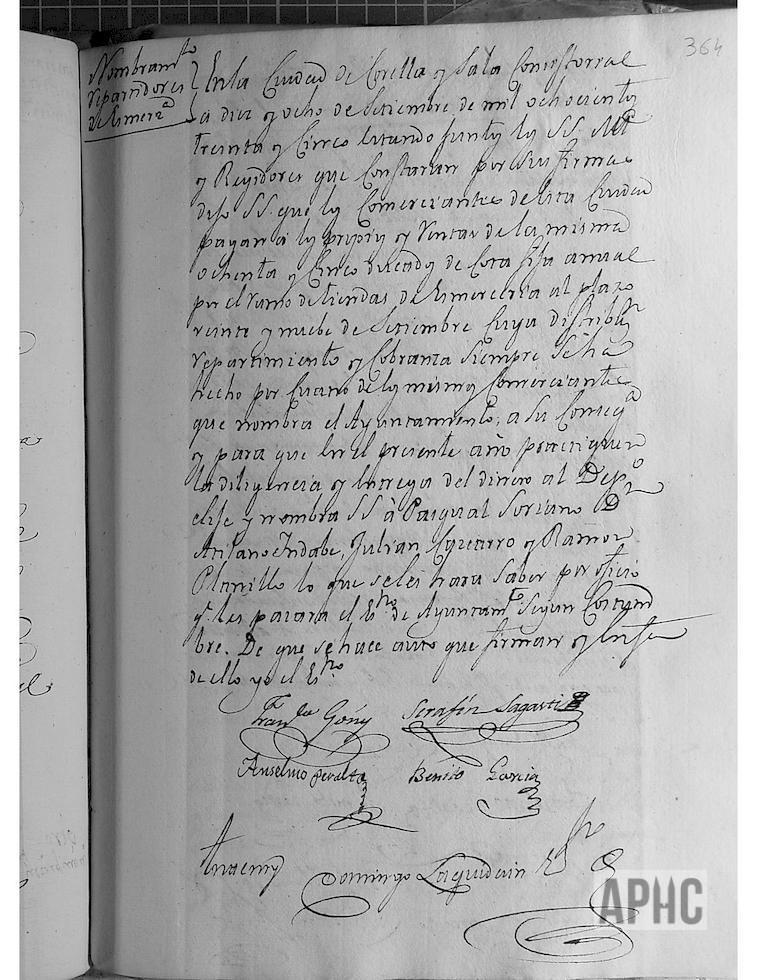 364
Nombramto
repartidores
de Esmerza
En la Ciudad de Corella y Sala Consistorial
a diez y ocho de Setiembre de mil ochocientos
treinta y Cinco estando juntos los SS. Alce
y Regidores que Constaran por sus firmas
dijo SS. que los Comerciantes de esta Ciudad
pagan a los propios y rentas de la misma
ochenta y Cinco ducados de Cota fija anual
por el ramo de tiendas de Esmerceria al plazo
veinte y nuebe de Setiembre Cuya distribn
repartimiento y Cobranza siempre se ha
hecho por Cuatro de los mismos Comerciantes
que nombra el Ayuntamiento, a su Conseqa
y para que en el presente año practiquen
la diligencia y entrega del dinero al Depo
elije y nombra SS à Pasqual Soriano D
Atilano Indabe, Julian Yguarro y Ramon
Planillo lo que se les hara saber por oficio
q. les pasara el Esno de Ayuntamto Segun Costum
bre. De que se hace auto que firman y en fe
de ello yo el Esno
Franco Goñy Serafin Sagasti
Anselmo Peralta Benito Garcia
Antemy Domingo Laquidain Esno
APHC